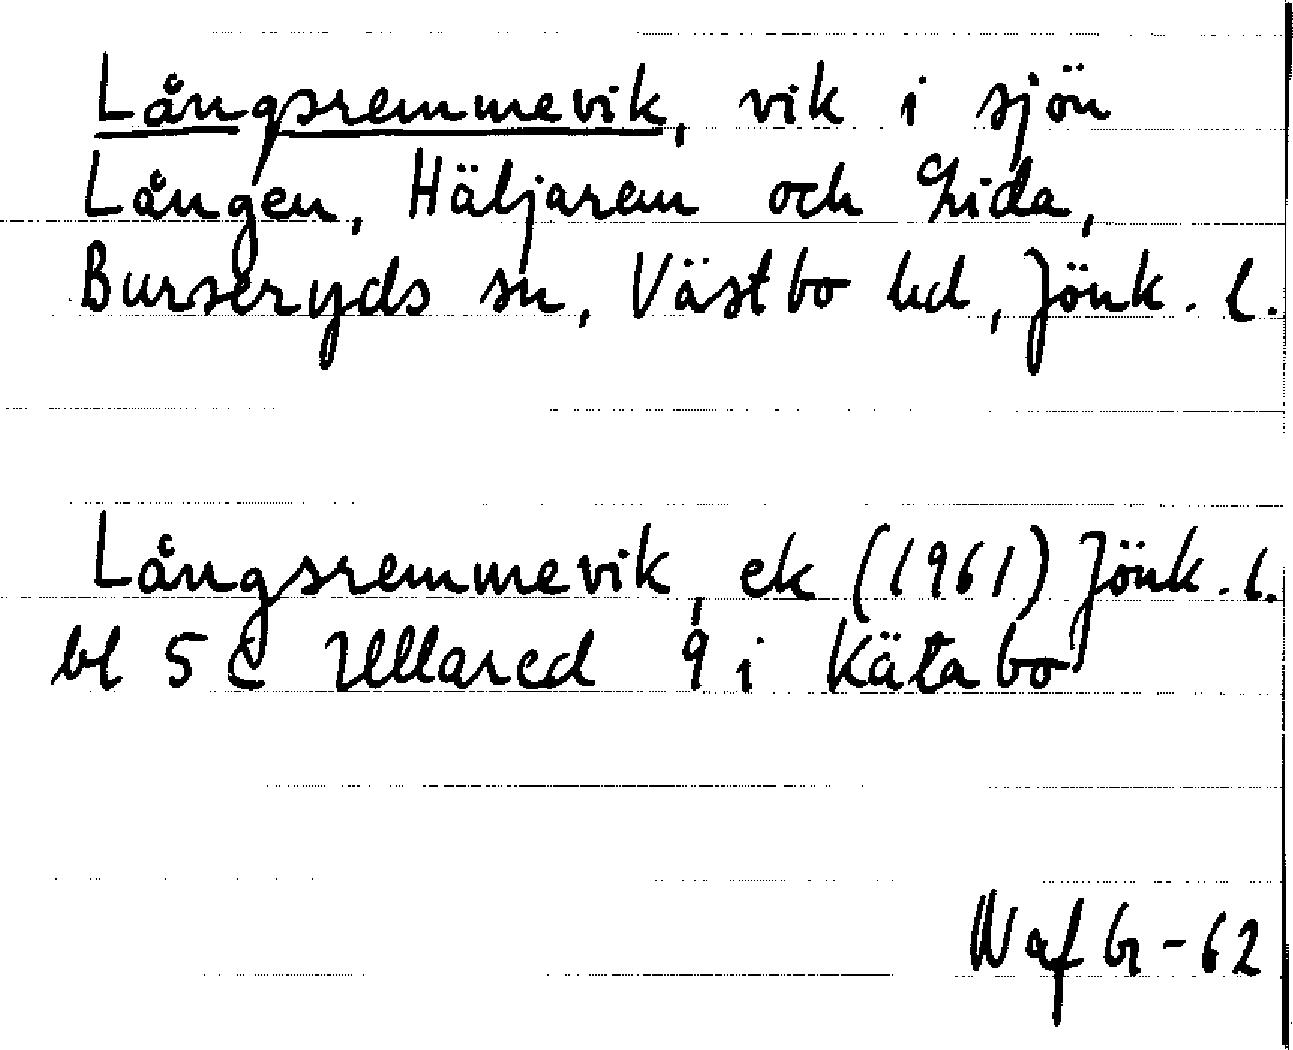 Långsremmevik, vik i sjön
Lången, Häljarem och Lida,
Burseryds sn, Västbo hd, Jönk. l.
Långsremmevik, ek (1961) Jönk. l.
bl 5 C Ullared 9 i Kätabo
W af G-62